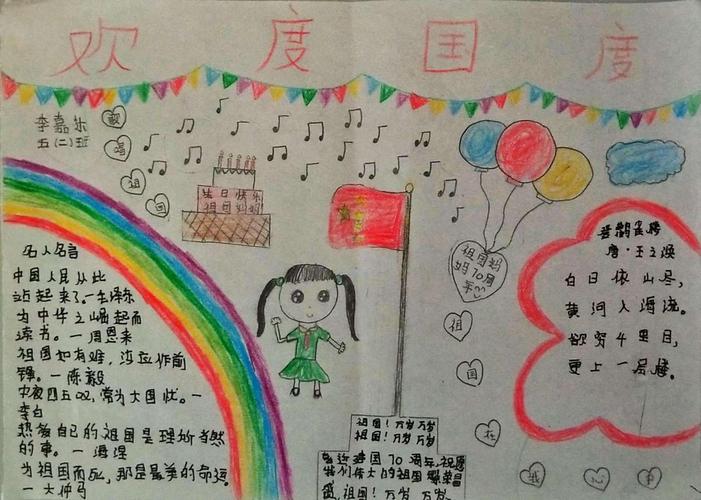 欢度国度
李嘉乐
五(二)班
歌
唱
祖
国
生日快乐
祖国妈妈
祖国妈
妈70周
年
祖
国
在
我
心
中
名人名言
中国人民从此
站起来了—毛泽东
为中华之崛起而
读书。—周恩来
祖国如有难,汝应作前
锋。—陈毅
中夜四五叹,常为大国忧。—
李白
热爱自己的祖国是理所当然
的事。—海涅
为祖国而死,那是最美的命运。
—大仲马
祖国!万岁 万岁
祖国!万岁 万岁
建国70周年,祝愿
我们伟大的祖国繁荣昌
盛,祖国!万岁 万岁。
登鹳雀楼
唐·王之涣
白日依山尽,
黄河入海流。
欲穷千里目,
更上一层楼。